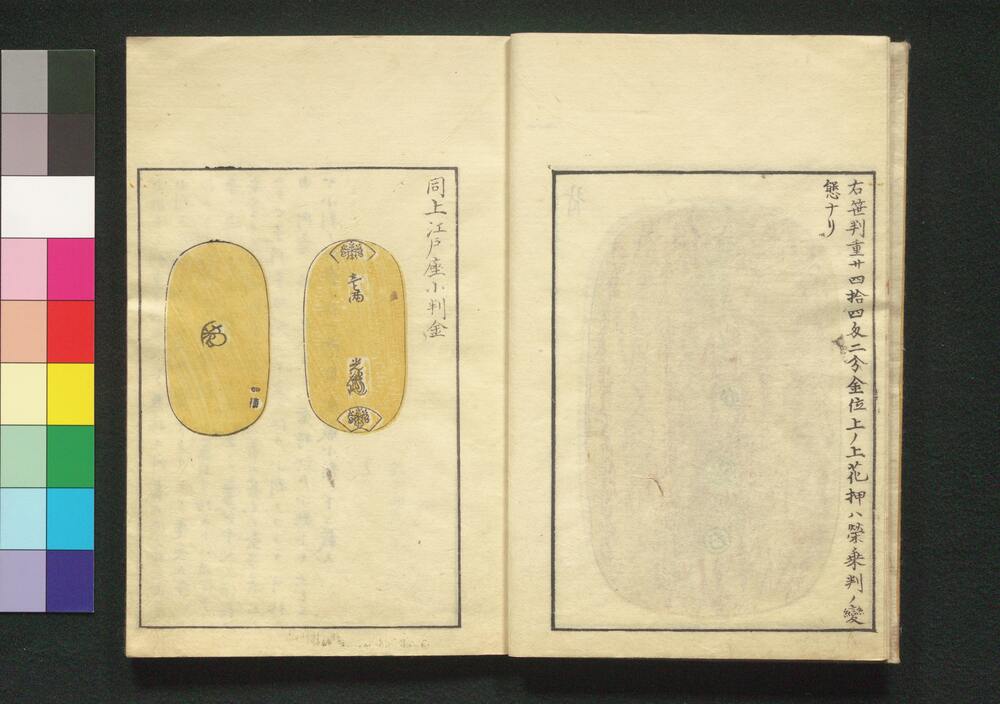 右笹判重サ四拾四匁二分金位上ノ上花押ハ榮乘判ノ變
態ナリ
同上江戸座小判金
壹兩
光次